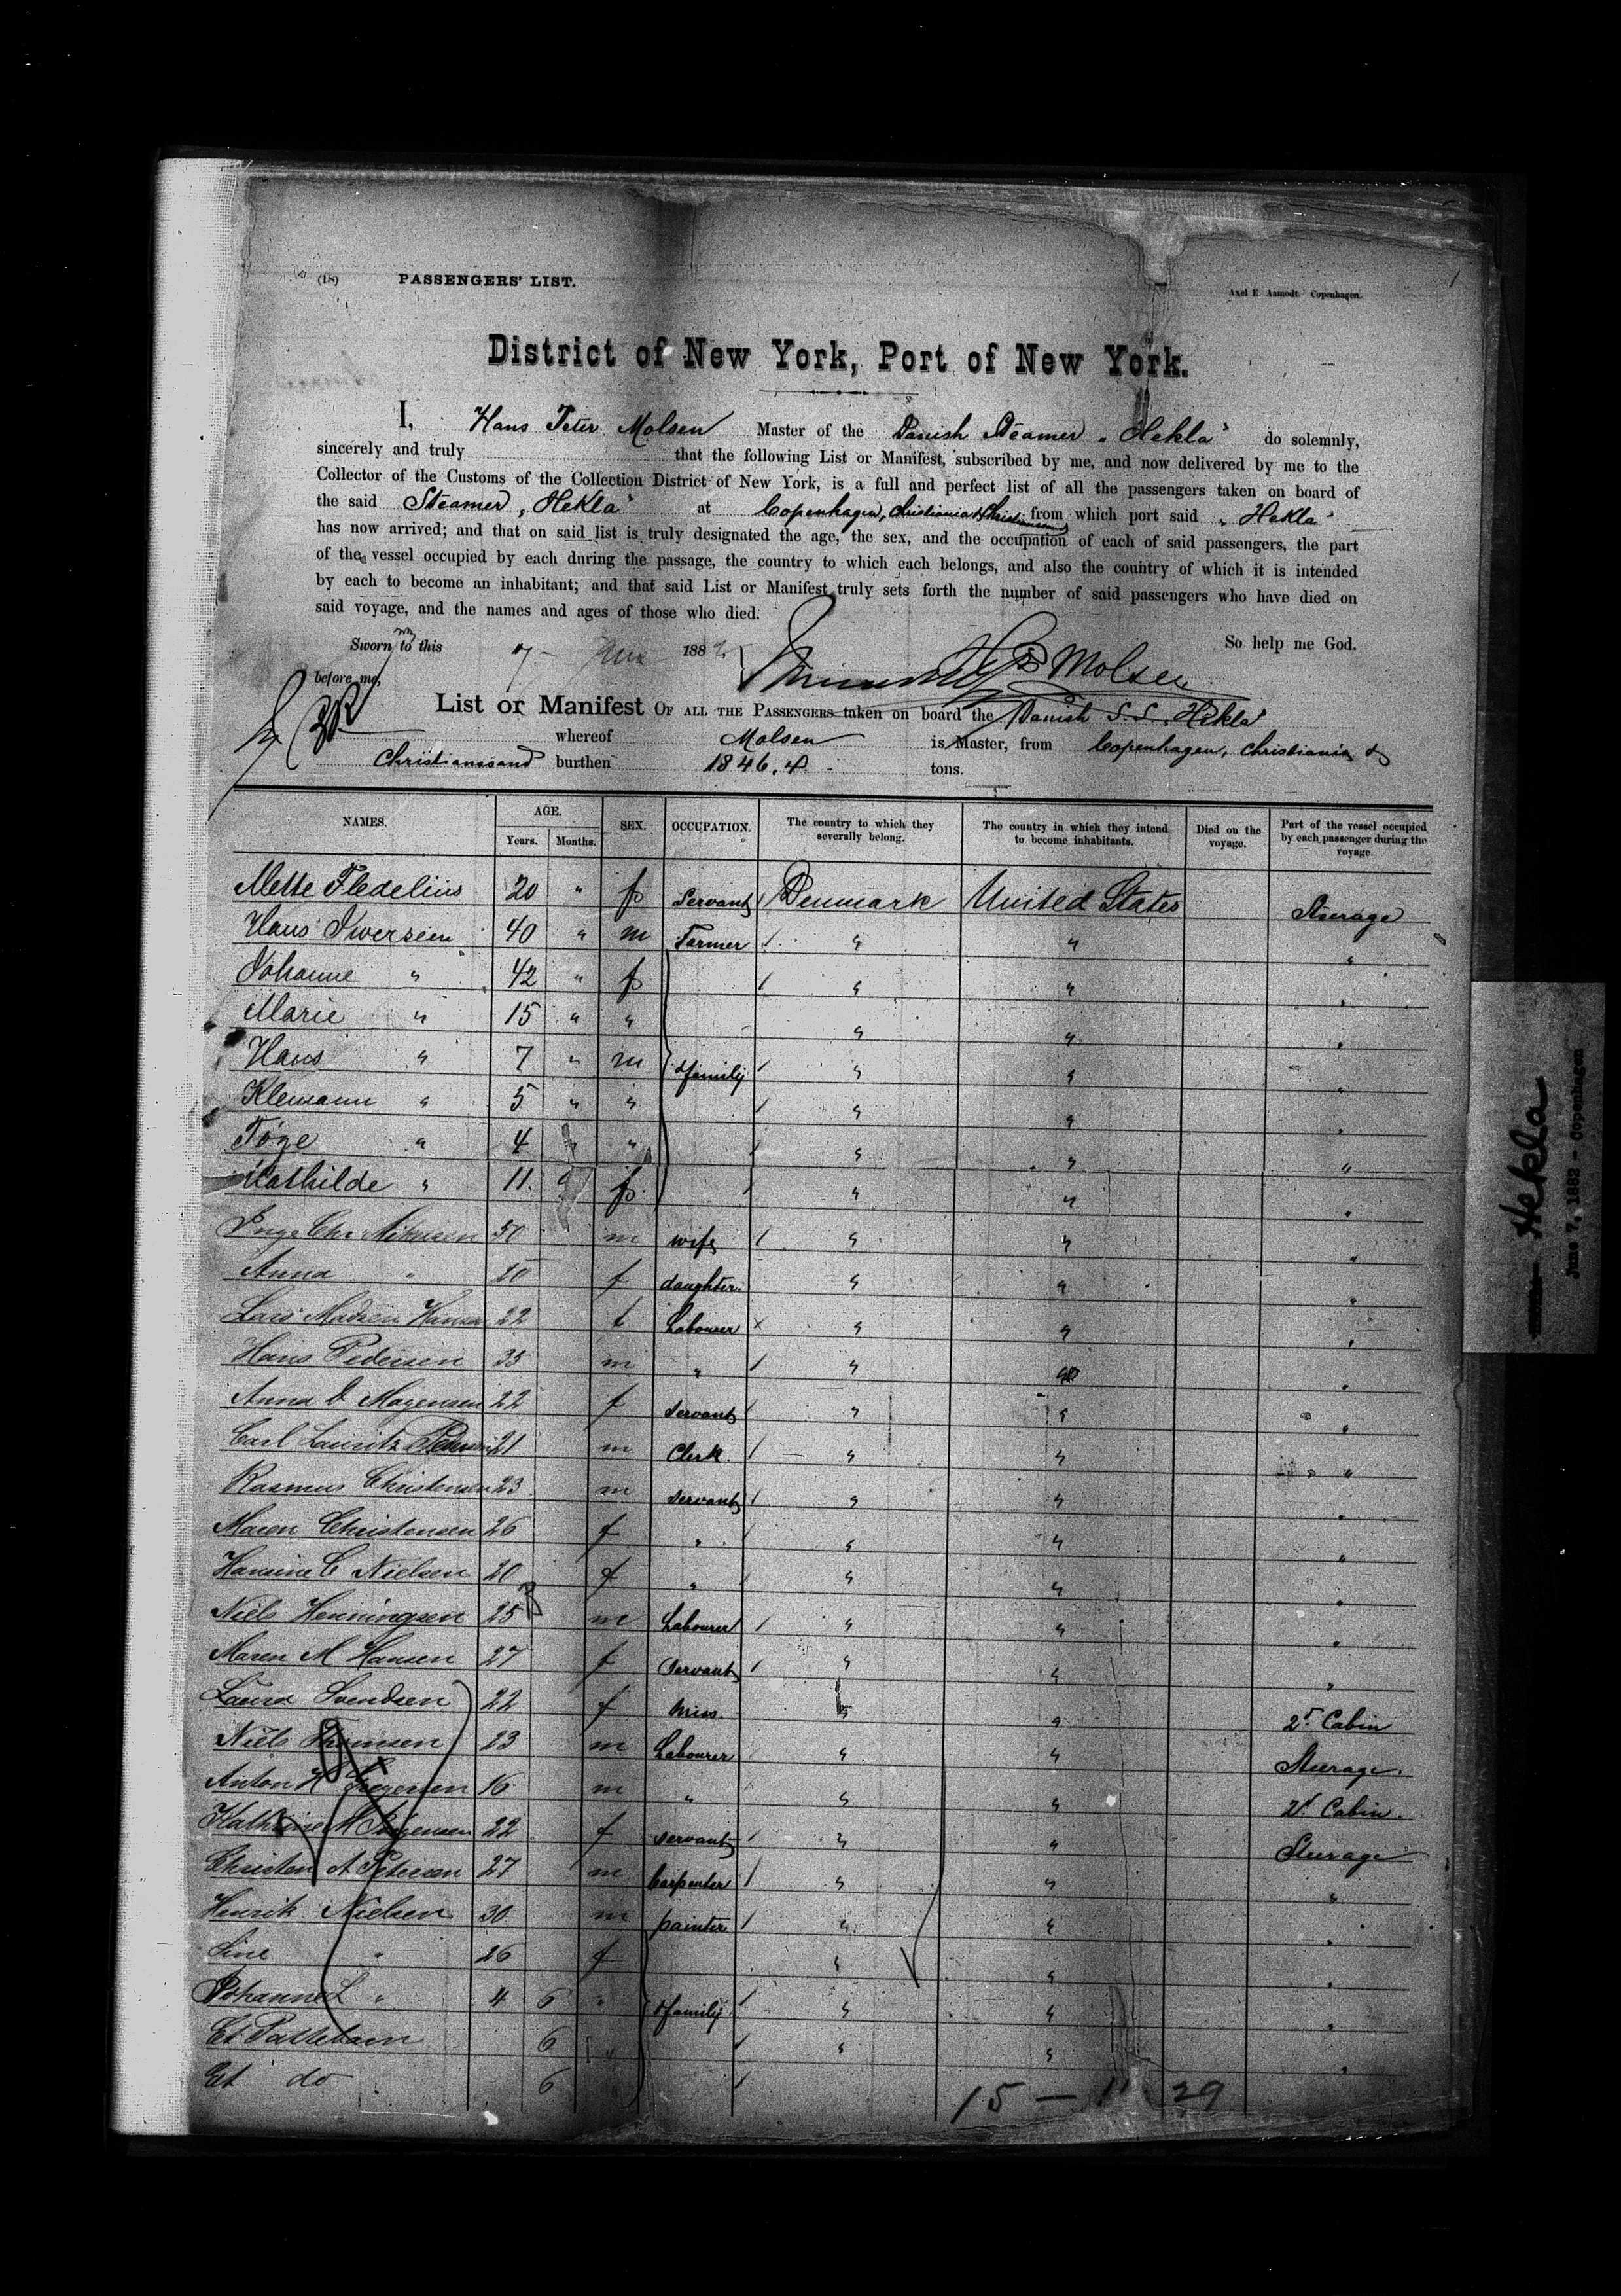 (18) PASSENGERS' LIST.
Axel E. Aamodt. Copenhagen.
1
District of New York, Port of New York.
I, Hans Peter Molsen Master of the Danish Steamer „Hekla" do solemnly,
sincerely and truly that the following List or Manifest, subscribed by me, and now delivered by me to the
Collector of the Customs of the Collection District of New York, is a full and perfect list of all the passengers taken on board of
the said Steamer „Hekla" at Copenhagen, Christiania & Christianssand from which port said „Hekla"
has now arrived; and that on said list is truly designated the age, the sex, and the occupation of each of said passengers, the part
of the vessel occupied by each during the passage, the country to which each belongs, and also the country of which it is intended
by each to become an inhabitant; and that said List or Manifest truly sets forth the number of said passengers who have died on
said voyage, and the names and ages of those who died.
Sworn to this 7 June 1882 So help me God.
before me, HP Molsen
List or Manifest OF ALL THE PASSENGERS taken on board the Danish S.S. „Hekla"
whereof Molsen is Master, from Copenhagen, Christiania &
Christianssand burthen 1846.4. tons.
NAMES. AGE. Years. Months. SEX. OCCUPATION. The country to which they severally belong. The country in which they intend to become inhabitants. Died on the voyage. Part of the vessel occupied by each passenger during the voyage.
Mette Fledelius 20 " f Servant / Denmark United States Steerage
Hans Iversen 40 " m Farmer / " " "
Johanne " 42 " f / " " "
Marie " 15 " " " " "
Hans " 7 " m family / " " "
Klemann " 5 " " / " " "
Töge " 4 " " / " " "
Mathilde " 11. " f / " " "
50 m wife / " " "
Anna " 20 f daughter. " " "
Lars Madsen Hansen 22 f Labourer x " " "
Hans Pedersen 35 m " / " " "
Anna D Mogensen 22 f servant / " " "
Carl Lauritz Petersen 21 m Clerk. / " " "
Rasmus Christensen 23 m servant / " " "
Maren Christensen 26 f " / " " "
Hansine C Nielsen 20 f " / " " "
Niels Henningsen 25 m Labourer / " " "
Maren M Hansen 27 f Servant / " " "
Laura Svendsen 22 f Miss. " " 2d Cabin
Niels Thomsen 23 m Labourer " " Steerage.
Anton H Jörgensen 16 m " " " 2d Cabin.
Kathrine M Jörgensen 22 f servant / " " Steerage
Christen A Petersen 27 m Carpenter / " " "
Henrik Nielsen 30 m painter / " " "
Line " 26 f " " "
Johanne L " 4 6 " family / " " "
Et Pattebarn 6 " / " " "
Et do 6 /
15 — 11 29
Hekla
June 7, 1882 - Copenhagen